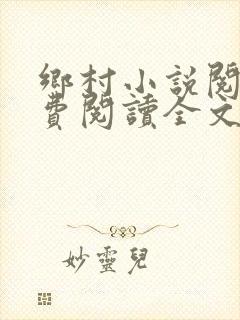 鄉村小說閱
費閱讀全文
妙靈兒